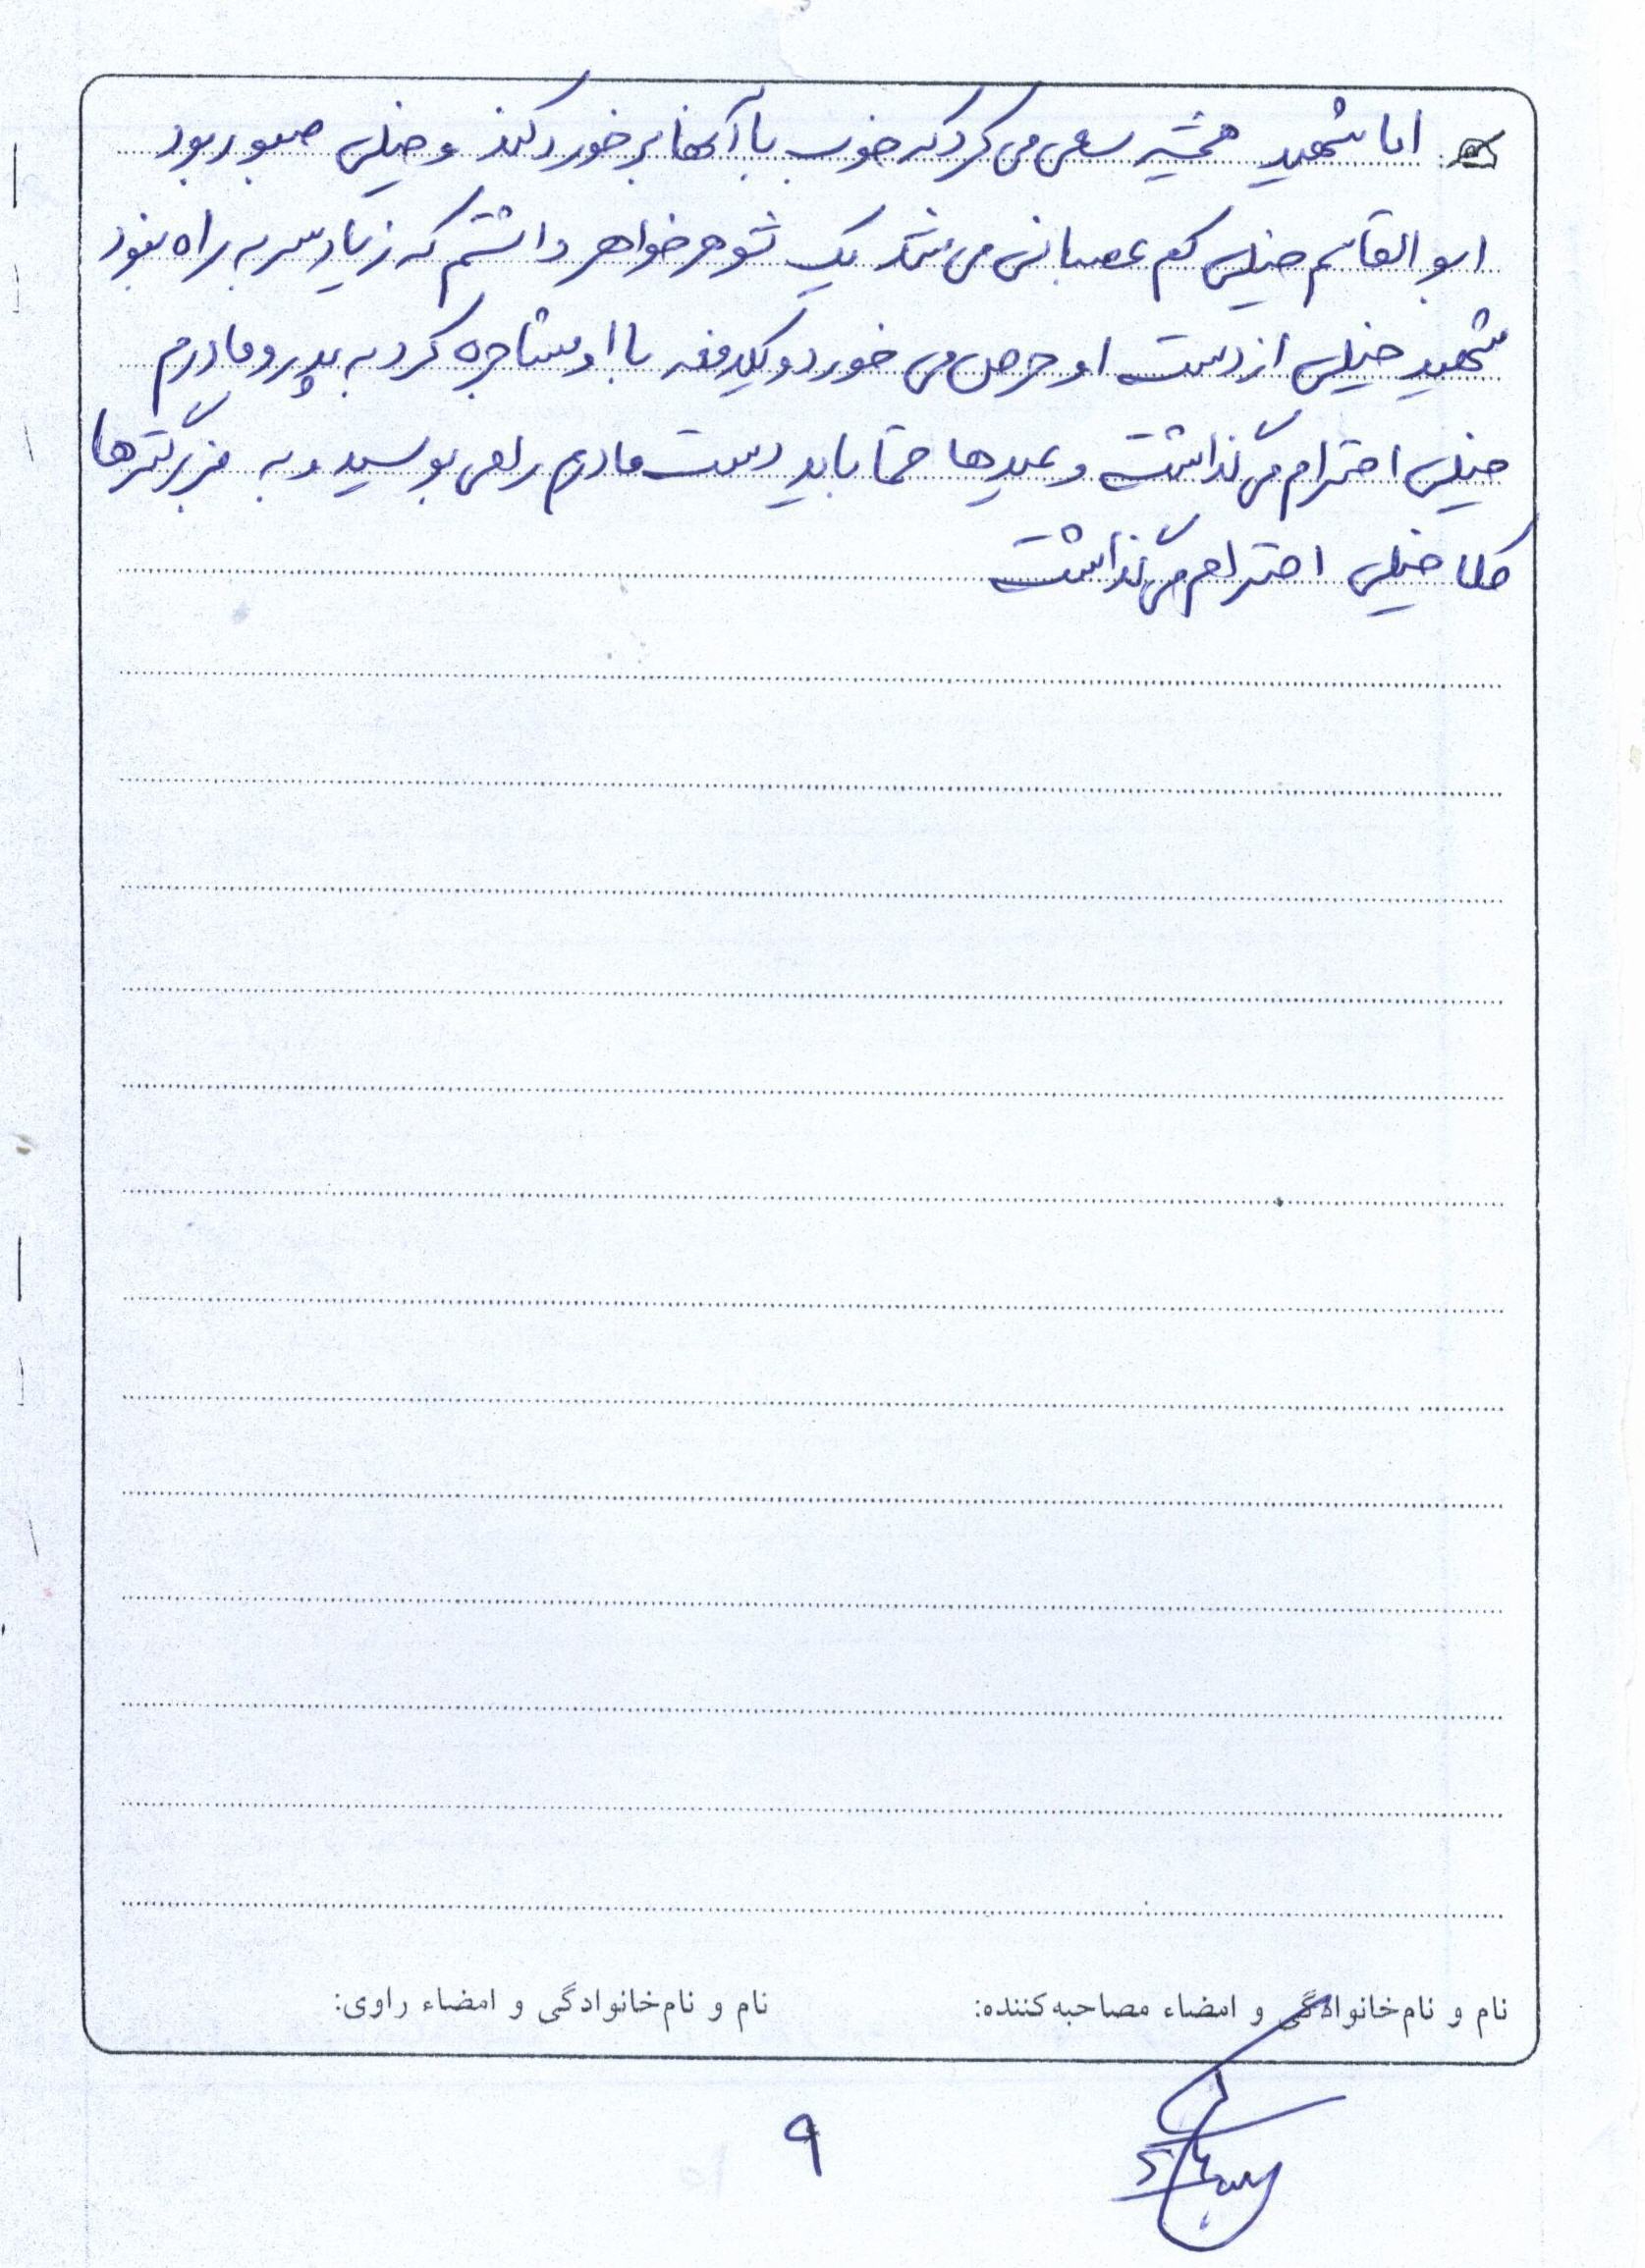 اما شهید همیشه سعی می کرد که خوب با آنها برخورد کند و خیلی صبور بود
ابوالقاسم خیلی کم عصبانی می شد یک شوهر خواهر داشتم که زیاد سر به راه نبود
شهید خیلی از دست او حرص می خورد و یکدفعه با او مشاجره کرد به پدر و مادرم
خیلی احترام می گذاشت و عیدها حتما باید دست مادرم را می بوسید و به بزرگترها
کلا خیلی احترام می گذاشت
نام و نام‌خانوادگی و امضاء مصاحبه‌کننده:
نام و نام‌خانوادگی و امضاء راوی:
۹